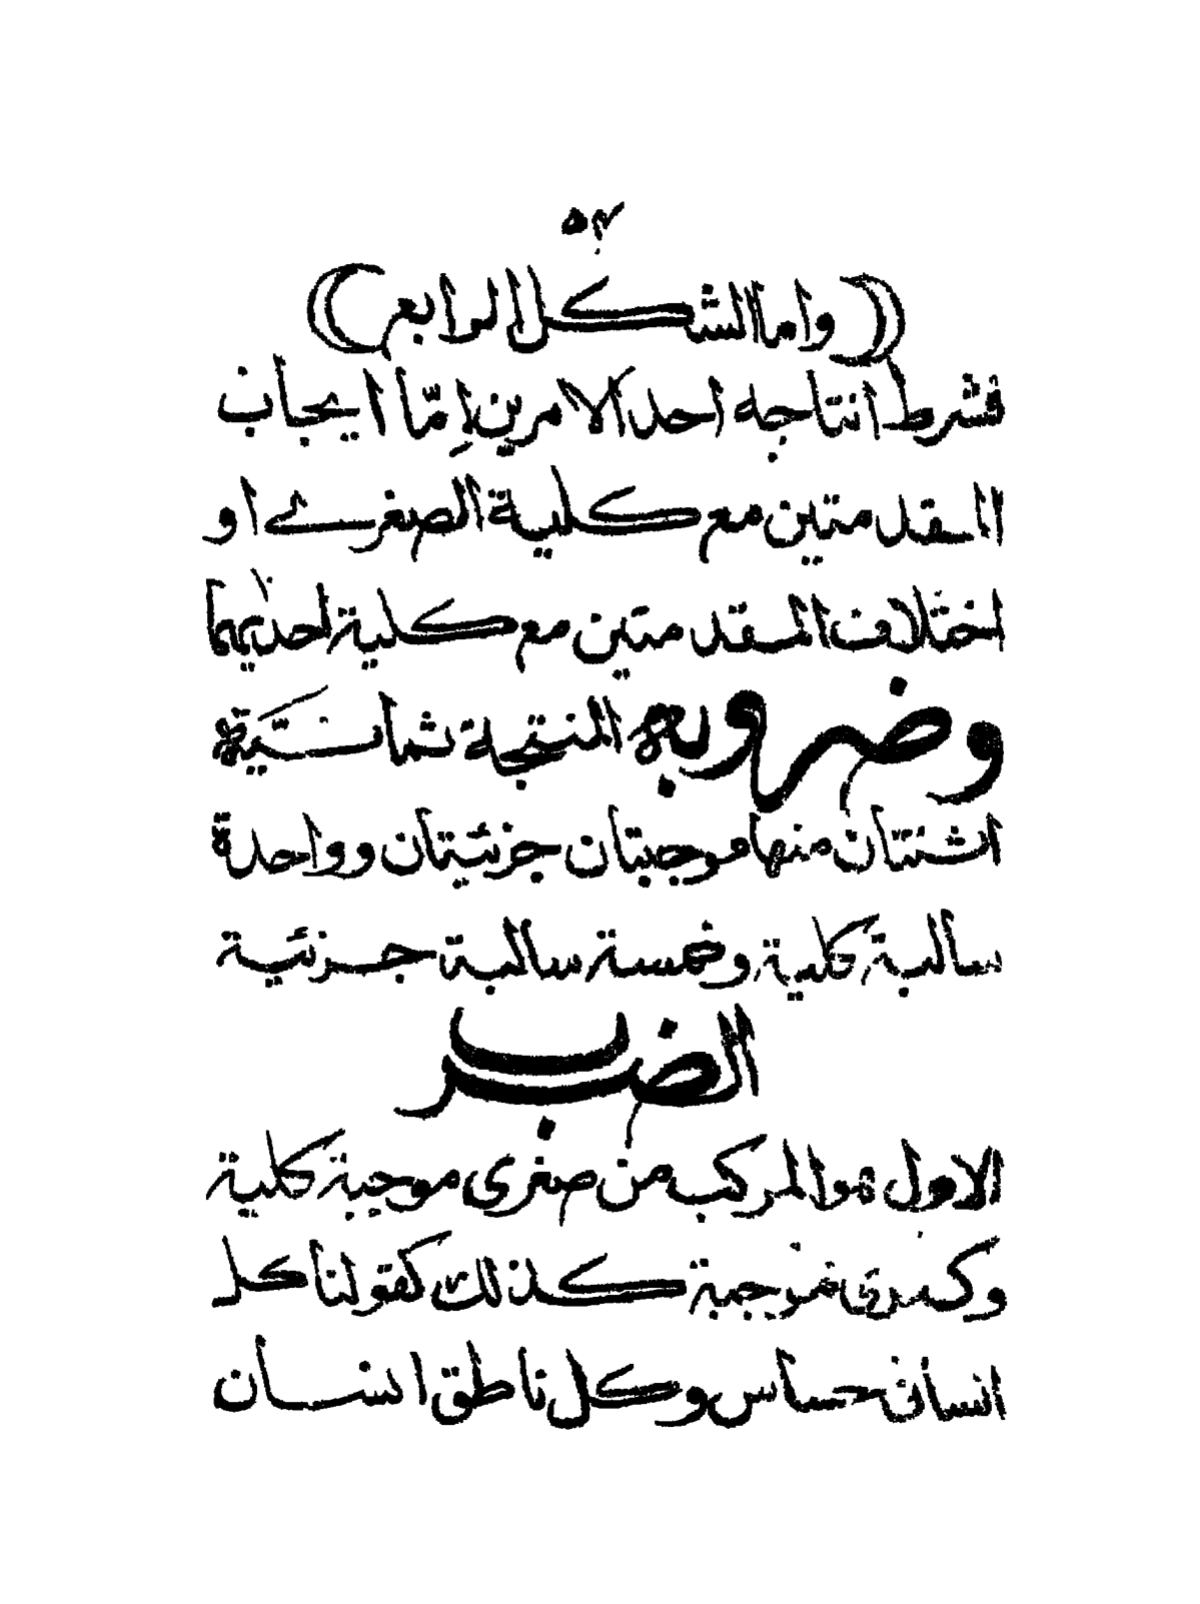 ٥٣
(واما الشكل الرابع)
فشرط انتاجه احد الامرين إمّا ايجاب
المقدمتين مع كلية الصغرى او
اختلاف المقدمتين مع كلية احديهما
وضروبه المنتجة ثمانيّة
اثنتان منها موجبتان جزئيتان وواحدة
سالبة كلية وخمسة سالبة جزئية
الضرب
الاول هو المركب من صغرى موجبة كلية
وكبرى موجبة كذلك كقولنا كل
انسان حساس وكل ناطق انسان